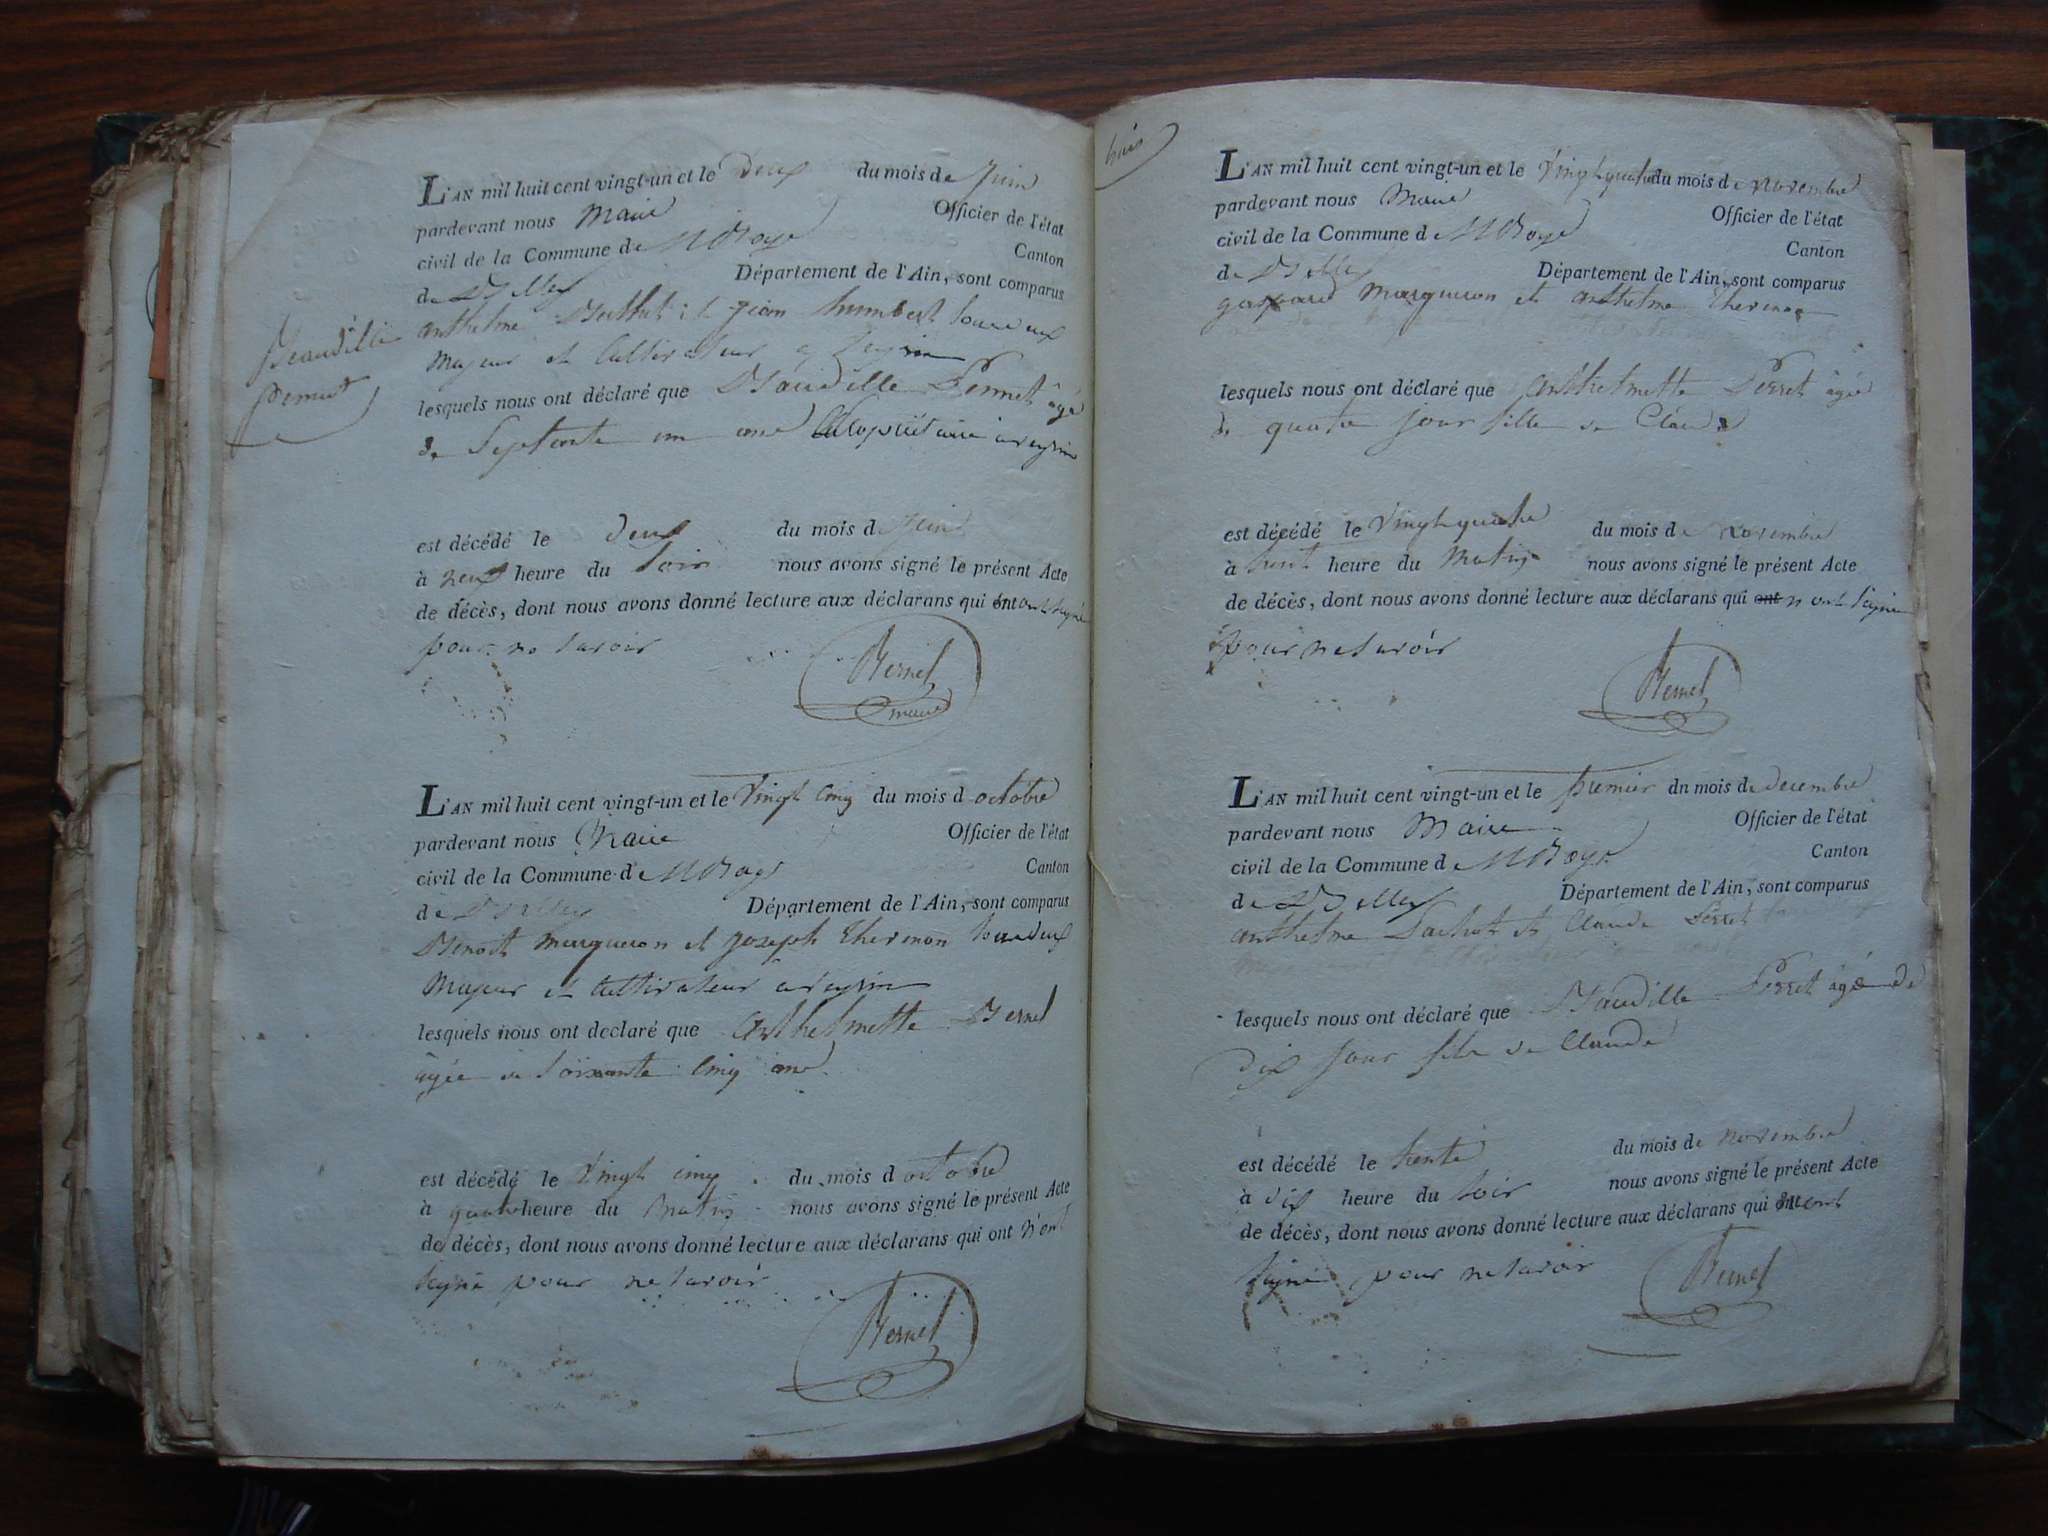 L'AN mil huit cent vingt-un et le deux du mois de Juin
pardevant nous Maire Officier de l'état
civil de la Commune de Canton
de Département de l'Ain, sont comparus
anthelme et jean humbert
Majeur et Cultivateur a
Beaudille
pernet
lesquels nous ont déclaré que Baudille Pernet âgé
de Septante un ans
est décédé le deux du mois de Juin
à neuf heure du Soir nous avons signé le présent Acte
de décès, dont nous avons donné lecture aux déclarans qui ont
pour ne savoir
Bernel
maire
L'AN mil huit cent vingt-un et le Vingt cinq du mois d octobre
pardevant nous Maire Officier de l'état
civil de la Commune d Canton
de Département de l'Ain, sont comparus
Benoit marqueron et joseph thermon
Majeur et Cultivateur a
lesquels nous ont declaré que Anthelmette Bernel
âgée de Soixante Cinq ans
est décédé le Vingt cinq du mois d octobre
à quatre heure du Matin nous avons signé le présent Acte
de décès, dont nous avons donné lecture aux déclarans qui ont n'ont
Signé pour ne savoir
Bernel
L'AN mil huit cent vingt-un et le Vingtquatre du mois de novembre
pardevant nous Maire Officier de l'état
civil de la Commune d Canton
de Département de l'Ain, sont comparus
gaspard Marqueron et anthelme
lesquels nous ont déclaré que anthelmette Perret âgée
de quatre jour fille de Claude
est décédé le Vingtquatre du mois de novembre
à heure du Matin nous avons signé le présent Acte
de décès, dont nous avons donné lecture aux déclarans qui ont n'ont Signé
pour ne savoir
Bernel
L'AN mil huit cent vingt-un et le premier dn mois de decembre
pardevant nous Maire Officier de l'état
civil de la Commune d Canton
de Département de l'Ain, sont comparus
anthelme et Claude Perret
lesquels nous ont déclaré que Baudille Perret âgé de
Dix jour fils de Claude
est décédé le trente du mois de novembre
à dix heure du Soir nous avons signé le présent Acte
de décès, dont nous avons donné lecture aux déclarans qui
Signé pour ne savoir
Bernel